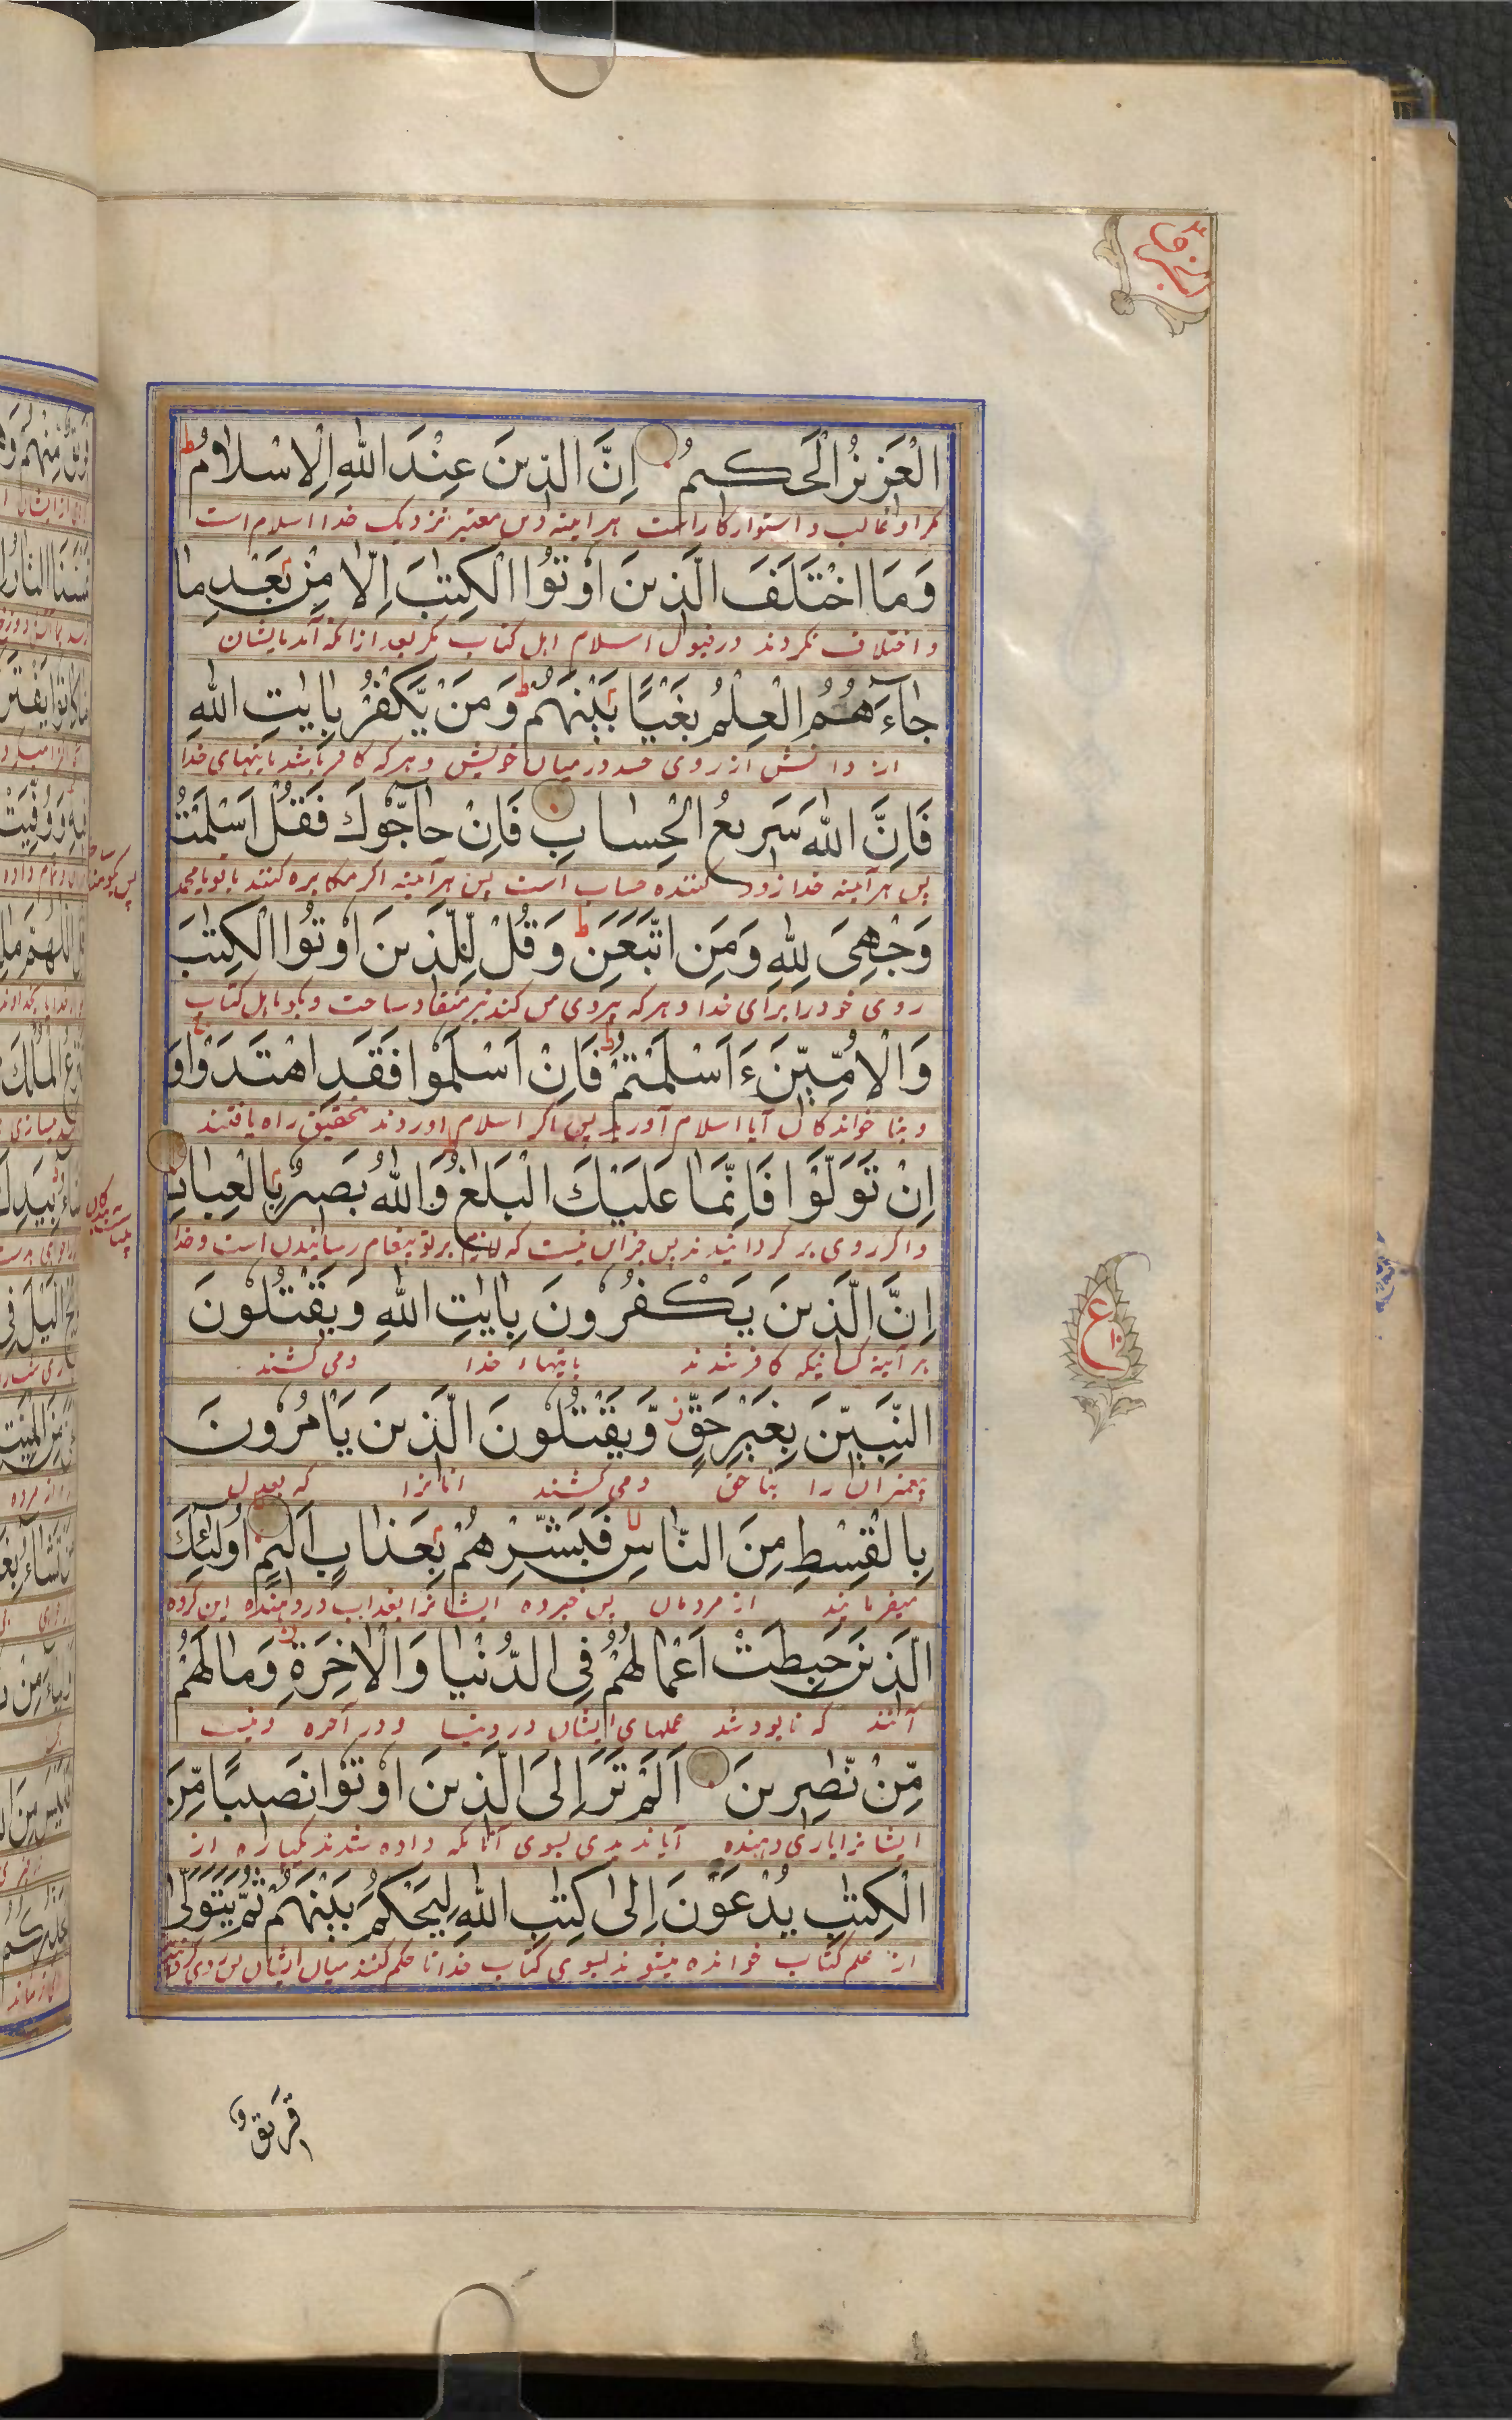 العَزِيزُ الْحَكِيمُ اِنَّ الدّينَ عِنْدَ اللهِ الْاِسْلامُ ط
مگر او غالب و استوار کار است هر اینه دین معتبر نزدیک خدا اسلام است
وَمَا اخْتَلَفَ الَّذينَ اُوْتُوا الْكِتٰبَ اِلَّا مِنْ بَعْدِ ما
و اختلاف نکردند در قبول اسلام اهل کتاب مگر بعد از انکه آمد بایشان
جاءَهُمُ الْعِلْمُ بَغْيًا بَيْنَهُمْ ط وَمَنْ يَكْفُرْ بِاٰيٰتِ اللهِ
از دانش از روی حسد در میان خویش و هرکه کافر باشد بایتهای خدا
فَاِنَّ اللهَ سَرِيعُ الْحِسابِ فَاِنْ حاجُّوكَ فَقُلْ اَسْلَمْتُ
پس هر آینه خدا زود کننده حساب است پس هر آینه اگر مکابره کنند با تو یا محمد
وَجْهِيَ لِلّٰهِ وَمَنِ اتَّبَعَنِ ط وَقُلْ لِلَّذينَ اُوْتُوا الْكِتٰبَ
روی خود را برای خدا و هرکه پیروی من کند نیز منقاد ساخت و بگو باهل کتاب
وَالْاُمِّيّٖنَ ءَاَسْلَمْتُمْ ط فَاِنْ اَسْلَمُوا فَقَدِ اهْتَدَوْا وَ
و بنا خوانندکان آیا اسلام آوردید پس اگر اسلام اوردند بتحقیق راه یافتند
اِنْ تَوَلَّوْا فَاِنَّمَا عَلَيْكَ الْبَلٰغُ وَاللهُ بَصيرٌ بِالْعِبادِ
و اگر روی بر گردانیدند پس جز این نیست که لازم بر تو پیغام رسانیدن است و خدا
اِنَّ الَّذينَ يَكْفُرُونَ بِاٰيٰتِ اللهِ وَيَقْتُلُونَ
هر آینه کسانیکه کافر شدند بایتهاء خدا و می کشند
النَّبِيّٖنَ بِغَيْرِ حَقٍّ وَّيَقْتُلُونَ الَّذينَ يَاْمُرُونَ
پیغمبران را بنا حق و می کشند انانرا که بعدل
بِالْقِسْطِ مِنَ النّاسِ فَبَشِّرْهُمْ بِعَذابٍ اَليمٍ اُولٰئِكَ
میفرمایند از مردمان پس خبر ده ایشانرا بعذاب درد دهنده این کروه
الَّذينَ حَبِطَتْ اَعْمالُهُمْ فِي الدُّنْيا وَالْاٰخِرَةِ وَمالَهُمْ
آنند که نابود شد عملهای ایشان در دنیا و در آخره و نیست
مِّنْ نّٰصِرينَ اَلَمْ تَرَ اِلَى الَّذينَ اُوْتُوا نَصيبًا مِّنَ
ایشانرا یاری دهنده آیا ندیدی بسوی آنانکه داده شدند یکپاره از
الْكِتٰبِ يُدْعَوْنَ اِلٰى كِتٰبِ اللهِ لِيَحْكُمَ بَيْنَهُمْ ثُمَّ يَتَوَلّٰى
از علم کتاب خوانده میشوند بسوی کتاب خدا تا حکم کند میان ایشان پس
ع
١٠
فَريقٌ